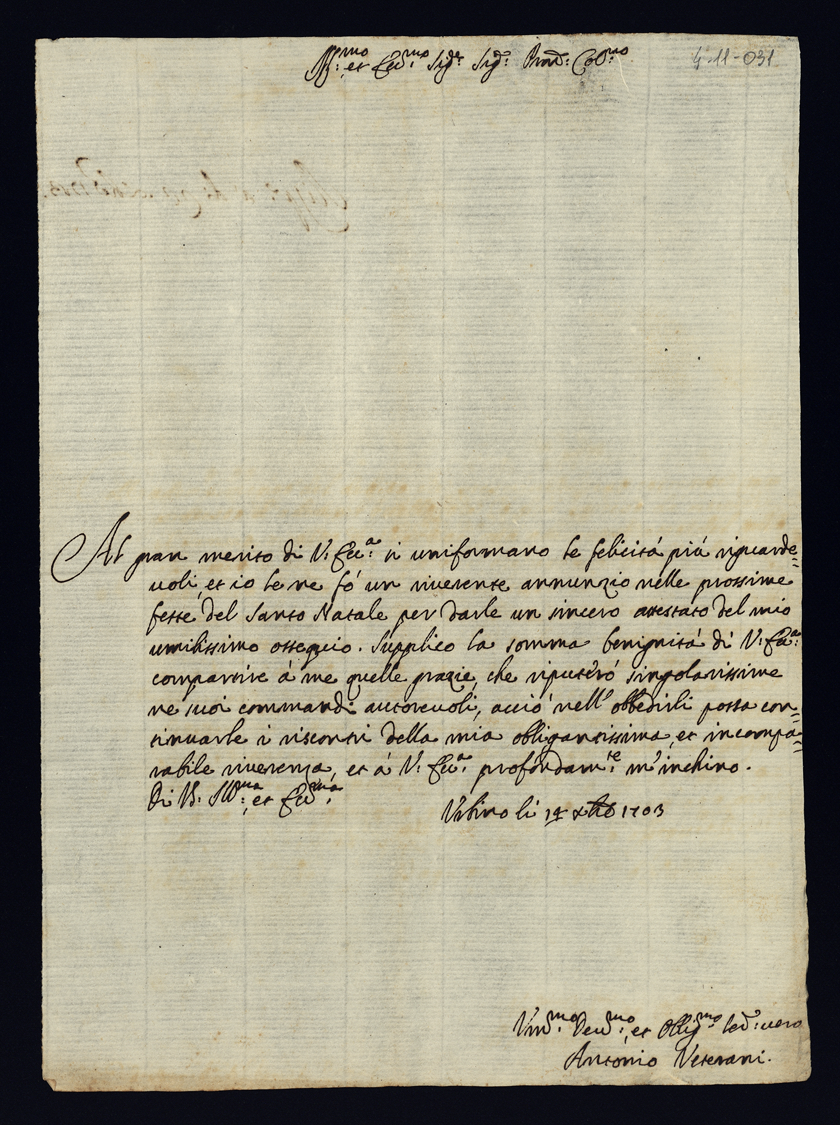 Ill:mo et Ecc:mo Sig.r Sig:r Pron: Col:mo
4-11-031
Al gran merito di V: Ecc:a si uniformano le felicità più riguarde=
uoli, et io le ne fó un riuerente annunzio nelle prossime
feste del Santo Natale per darle un sincero attestato del mio
umilissimo ossequio. Supplico la somma benignità di V: Ecc:a
compartire à me quelle grazie, che riputerò singolarissime
ne suoi commandi autoreuoli, acciò nell'obbedirli possa con=
tinuarle i riscontri della mia obligantissima, et incompa=
rabile riuerenza, et à V: Ecc:a profondam:te m'inchino.
Di V: Ill:ma, et Ecc:ma
Urbino li 14 Xbre 1703
Um:mo Deu:mo, et Oblig:mo Ser: uero
Antonio Veterani.